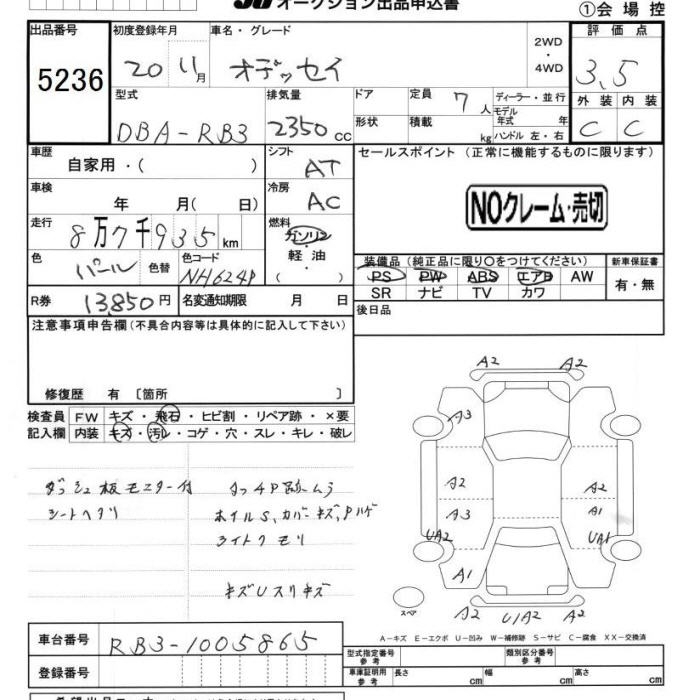 オークション出品申込書
①会場控
出品番号 初度登録年月 車名・グレード 2WD・4WD 評価点
5236 20 11月 オデッセイ 3.5
型式 排気量 ドア 定員 7人 ディーラー・並行 外装 内装
DBA-RB3 2350cc 形状 積載 kg モデル年式 年 ハンドル 左・右 C C
車歴 シフト セールスポイント (正常に機能するものに限ります)
自家用・( ) AT
車検 冷房 NOクレーム・売切
年 月( 日) AC
走行 燃料
8万7千935km ガソリン・軽油・( )
装備品 (純正品に限り○をつけてください) 新車保証書
色 色替 色コード PS PW ABS エアB AW 有・無
パール NH624P SR ナビ TV カワ
R券 13,850円 名変通知期限 月 日 後日品
注意事項申告欄 (不具合内容等は具体的に記入して下さい)
修復歴 有 〔箇所 〕
検査員 FW キズ・飛石・ヒビ割・リペア跡・×要
記入欄 内装 キズ・汚レ・コゲ・穴・スレ・キレ・破レ
A2 A2
A3
A2 A2
A3 A1
UA2 UA1
A1
A2 U1A2 A2
スペア
ダッシュ板モニター付 タッチP跡ムラ
シートヘタリ ホイルS、カバーキズ、Pハゲ
ライトクモリ
キズUスリキズ
A-キズ E-エクボ U-凹み W-補修跡 S-サビ C-腐食 XX-交換済
車台番号 RB3-1005865
型式指定番号 参考 類別区分番号 参考
登録番号 車庫証明用 参考 長さ cm 幅 cm 高さ cm